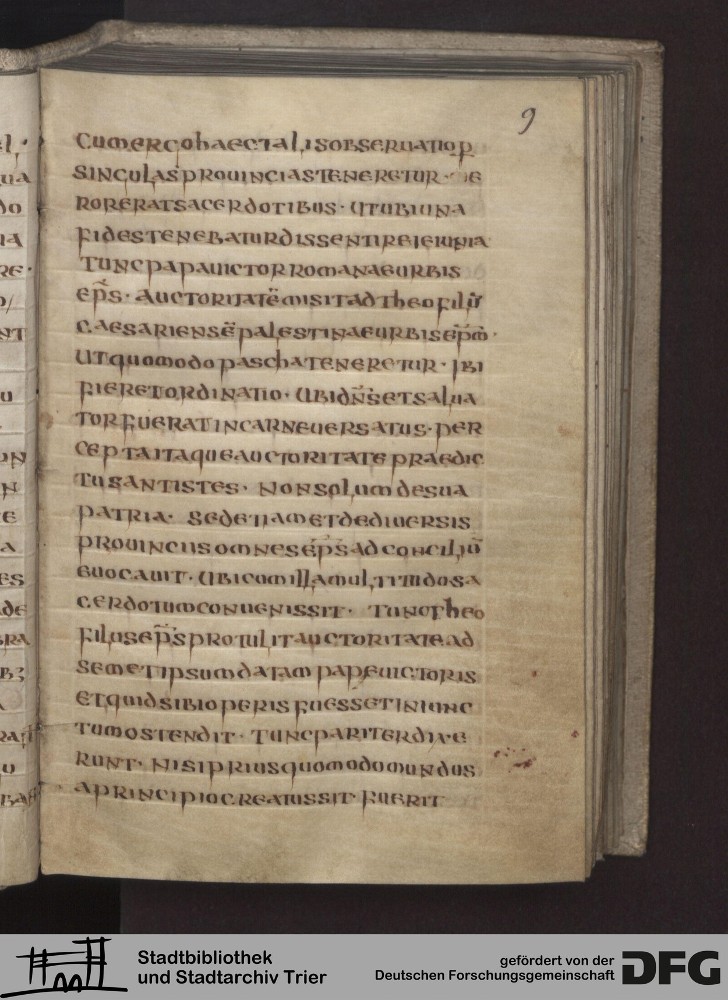 9
CUMERGOHAECTALISOBSERUATIOP̱
SINGULASPROUINCIASTENERETUR · E
RORERATSACERDOTIBUS · UTUBIUNA
FIDESTENEBATURDISSENTIREIEIUNIA
TUNCPAPAUICTORROMANAEURBIS
EP̅S · AUCTORITATE̅MISITADTHEOFILU̅
CAESARIENSE̅PALESTINAEURBISEP̅M̅ ·
UTQUOMODOPASCHATENERETUR · IBI
FIERETORDINATIO · UBIDN̅SETSALUA
TORFUERATINCARNEUERSATUS · PER
CEPTAITAQUEAUCTORITATEPRAEDIC
TUSANTISTES · NONSOLUMDESUA
PATRIA · SEDETIAMETDEDIUERSIS
PROUINCIISOMNESEP̅SADCONCILIU̅
EUOCAUIT · UBICUMILLAMULTITUDOSA
CERDOTUMCONUENISSIT · TUNCTHEO
FILUSEP̅SPROTULITAUCTORITATEAD
SEMETIPSUMDATAMPAPEUICTORIS
ETQUIDSIBIOPERISFUESSETINIUNC
TUMOSTENDIT · TUNCPARITERDIXE
RUNT · NISIPRIUSQUOMODOMUNDUS
APRINCIPIOCREATUSSIT FUERIT
Stadtbibliothek
und Stadtarchiv Trier
gefördert von der
Deutschen Forschungsgemeinschaft
DFG